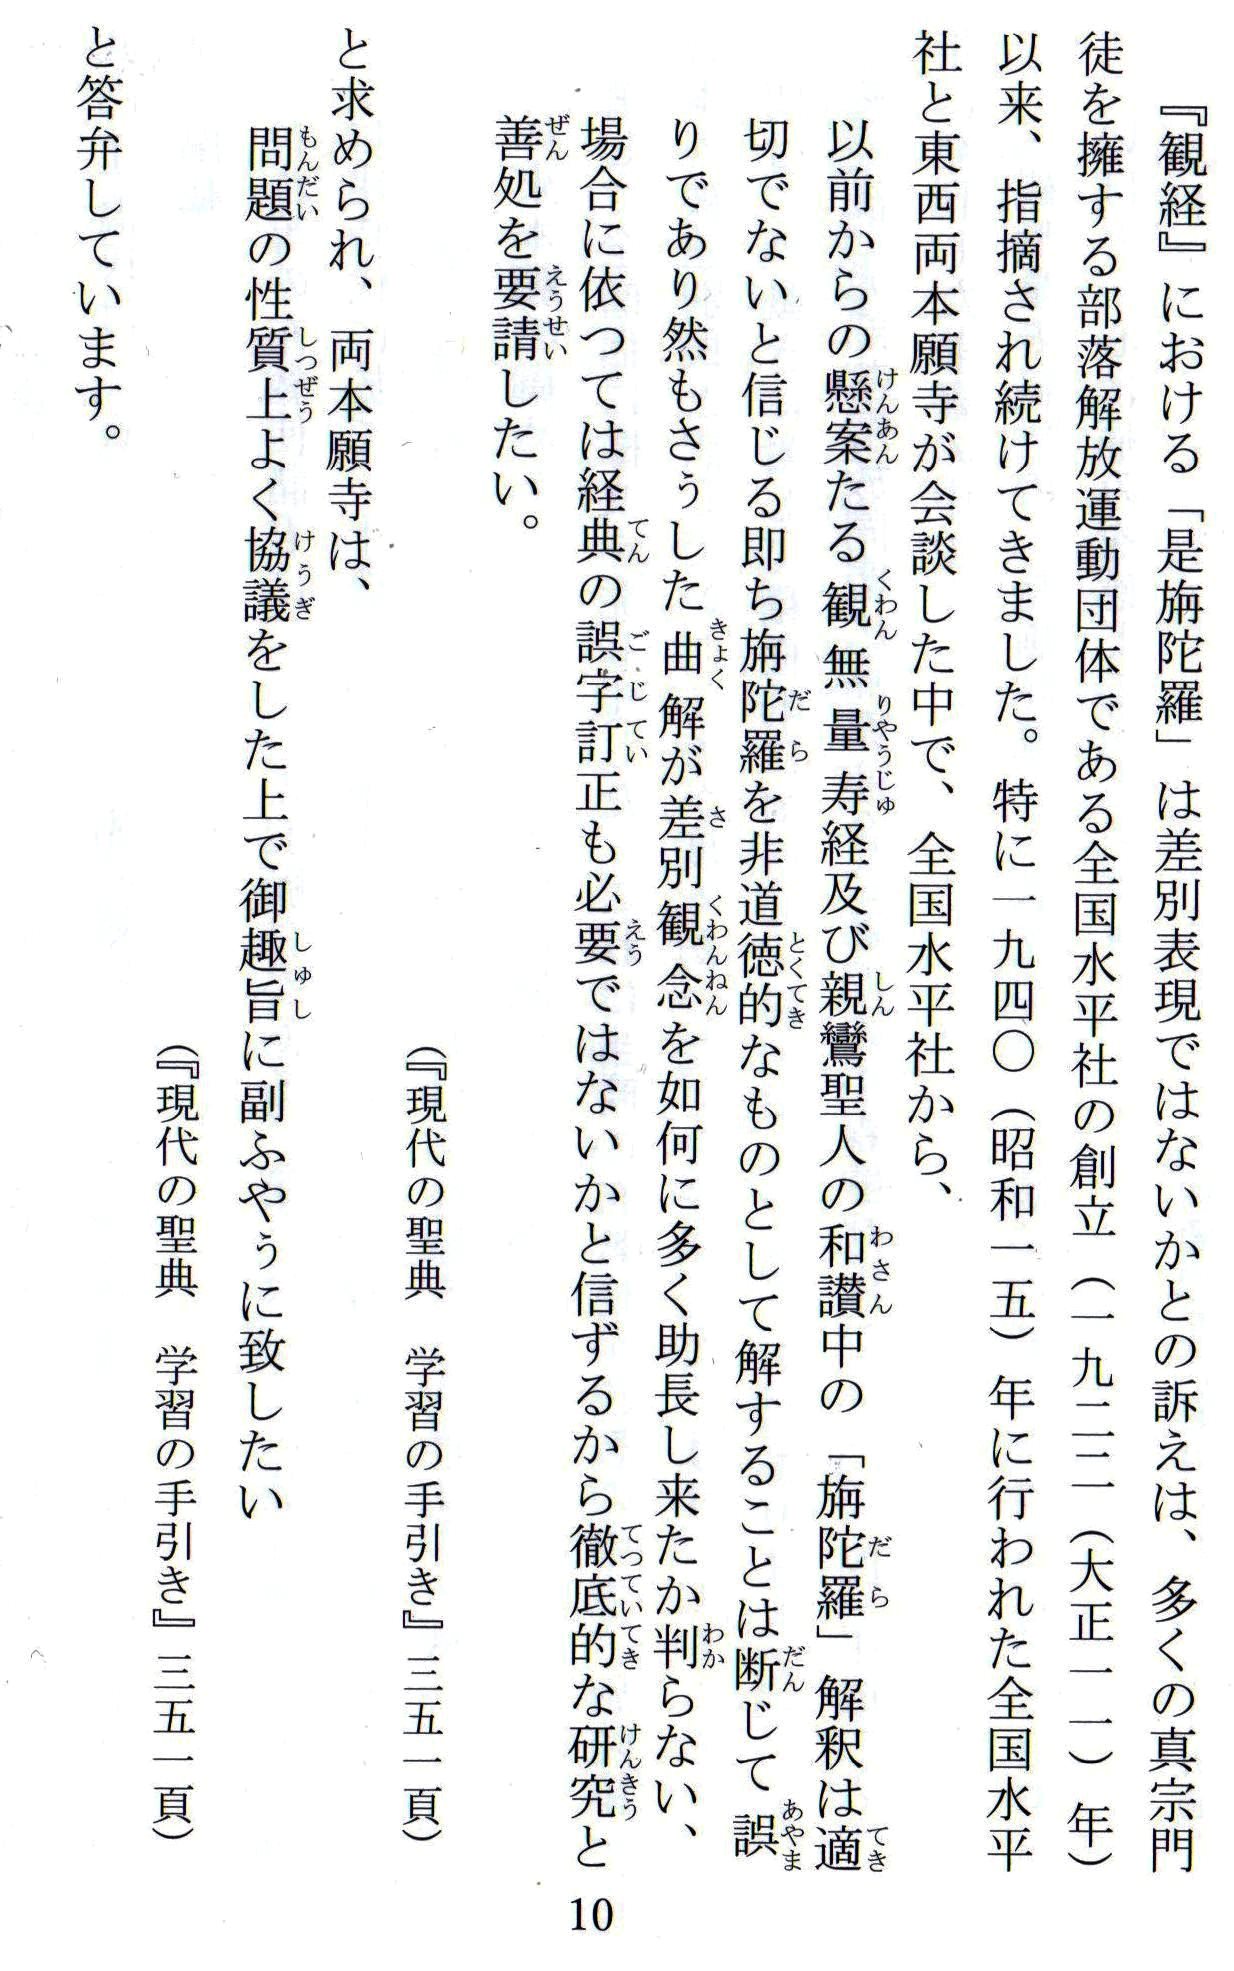 『観経』における「是旃陀羅」は差別表現ではないかとの訴えは、多くの真宗門
徒を擁する部落解放運動団体である全国水平社の創立（一九二二（大正一一）年）
以来、指摘され続けてきました。特に一九四〇（昭和一五）年に行われた全国水平
社と東西両本願寺が会談した中で、全国水平社から、
以前からの懸案たる観無量寿経及び親鸞聖人の和讃中の「旃陀羅」解釈は適
切でないと信じる即ち旃陀羅を非道徳的なものとして解することは断じて誤
りであり然もさうした曲解が差別観念を如何に多く助長し来たか判らない、
場合に依つては経典の誤字訂正も必要ではないかと信ずるから徹底的な研究と
善処を要請したい。
（『現代の聖典　学習の手引き』三五一頁）
と求められ、両本願寺は、
問題の性質上よく協議をした上で御趣旨に副ふやうに致したい
（『現代の聖典　学習の手引き』三五一頁）
と答弁しています。
10